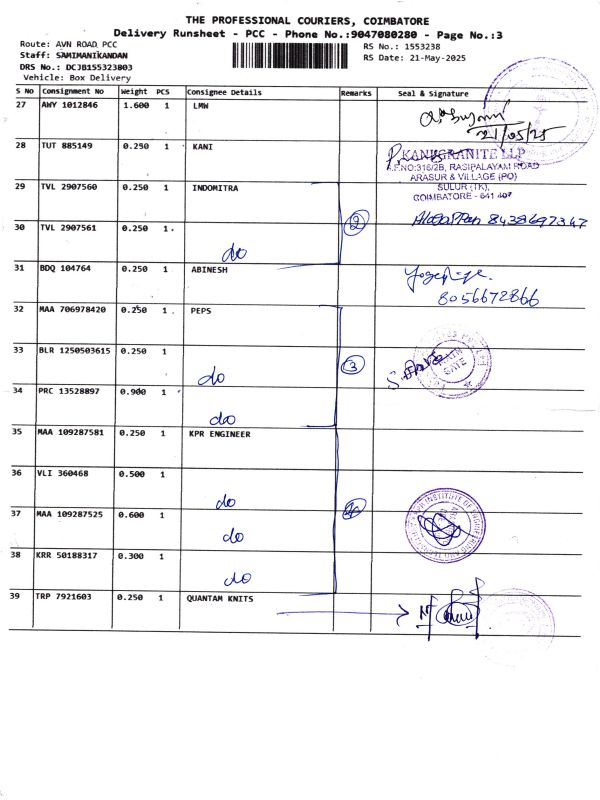 THE PROFESSIONAL COURIERS, COIMBATORE
Delivery Runsheet - PCC - Phone No.:9047080280 - Page No.:3
Route: AVN ROAD PCC
RS No.: 1553238
Staff: SAMIMANIKANDAN
RS Date: 21-May-2025
DRS No.: DCJB155323803
Vehicle: Box Delivery
S No Consignment No Weight PCS Consignee Details Remarks Seal & Signature
27 AWY 1012846 1.600 1 LMW
21/05/25
28 TUT 885149 0.250 1 KANI
KANI GRANITE LLP
S.F.NO:316/2B, RASIPALAYAM ROAD
ARASUR & VILLAGE (PO)
SULUR (TK),
COIMBATORE - 641 407
29 TVL 2907560 0.250 1 INDOMITRA
8438697347
30 TVL 2907561 0.250 1 do 2
31 BDQ 104764 0.250 1 ABINESH
8056672866
32 MAA 706978420 0.250 1 PEPS
33 BLR 1250503615 0.250 1 do 3
34 PRC 13528897 0.900 1 do
35 MAA 109287581 0.250 1 KPR ENGINEER
36 VLI 360468 0.500 1 do
37 MAA 109287525 0.600 1 do
38 KRR 50188317 0.300 1 do
39 TRP 7921603 0.250 1 QUANTAM KNITS